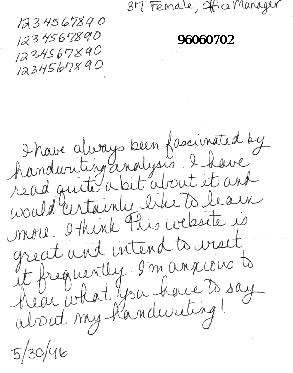 37 Female, Office Manager
1234567890
1234567890
1234567890
1234567890
96060702
I have always been fascinated by
handwriting analysis. I have
read quite a bit about it and
would certainly like to learn
more. I think this website is
great and intend to visit
it frequently. I'm anxious to
hear what you have to say
about my handwriting!
5/30/96